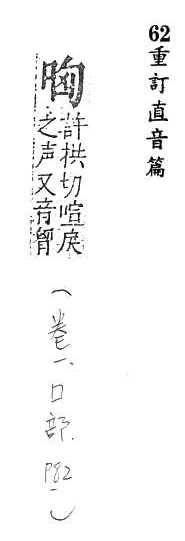 62
重訂直音篇
哅
許拱切喧戾
之声又音胷
(卷一、口部. P82)